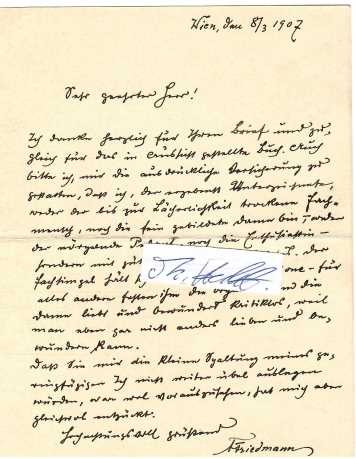 Wien, den 8/3 1907
Sehr geehrter Herr!
Ich danke herzlich für Ihren Brief und zu-
gleich für das in Aussicht gestellte Buch. Auch
bitte ich, mir die ausdrückliche Versicherung zu
gestatten, dass ich, der ergebenst Unterzeichnete,
weder der bis zur Lächerlichkeit trockene Fach-
mensch, noch die fein gebildete Dame bin, weder
der nörgelnde noch die Enthusiastin –
sondern mit der
Fachsimpel hält – für
alles andere fehlen ihm die und die
Dame liebt und bewundert kritiklos, weil
man eben gar nicht anders lieben und be-
wundern kann.
Dass Sie mir die kleine Spaltung meines ge-
ringfügigen Ich nicht weiter übel auslegen
würden, war wol vorauszusehen, hat mich aber
gleichwol entzückt.
Hochachtungsvoll grüssend
Friedmann